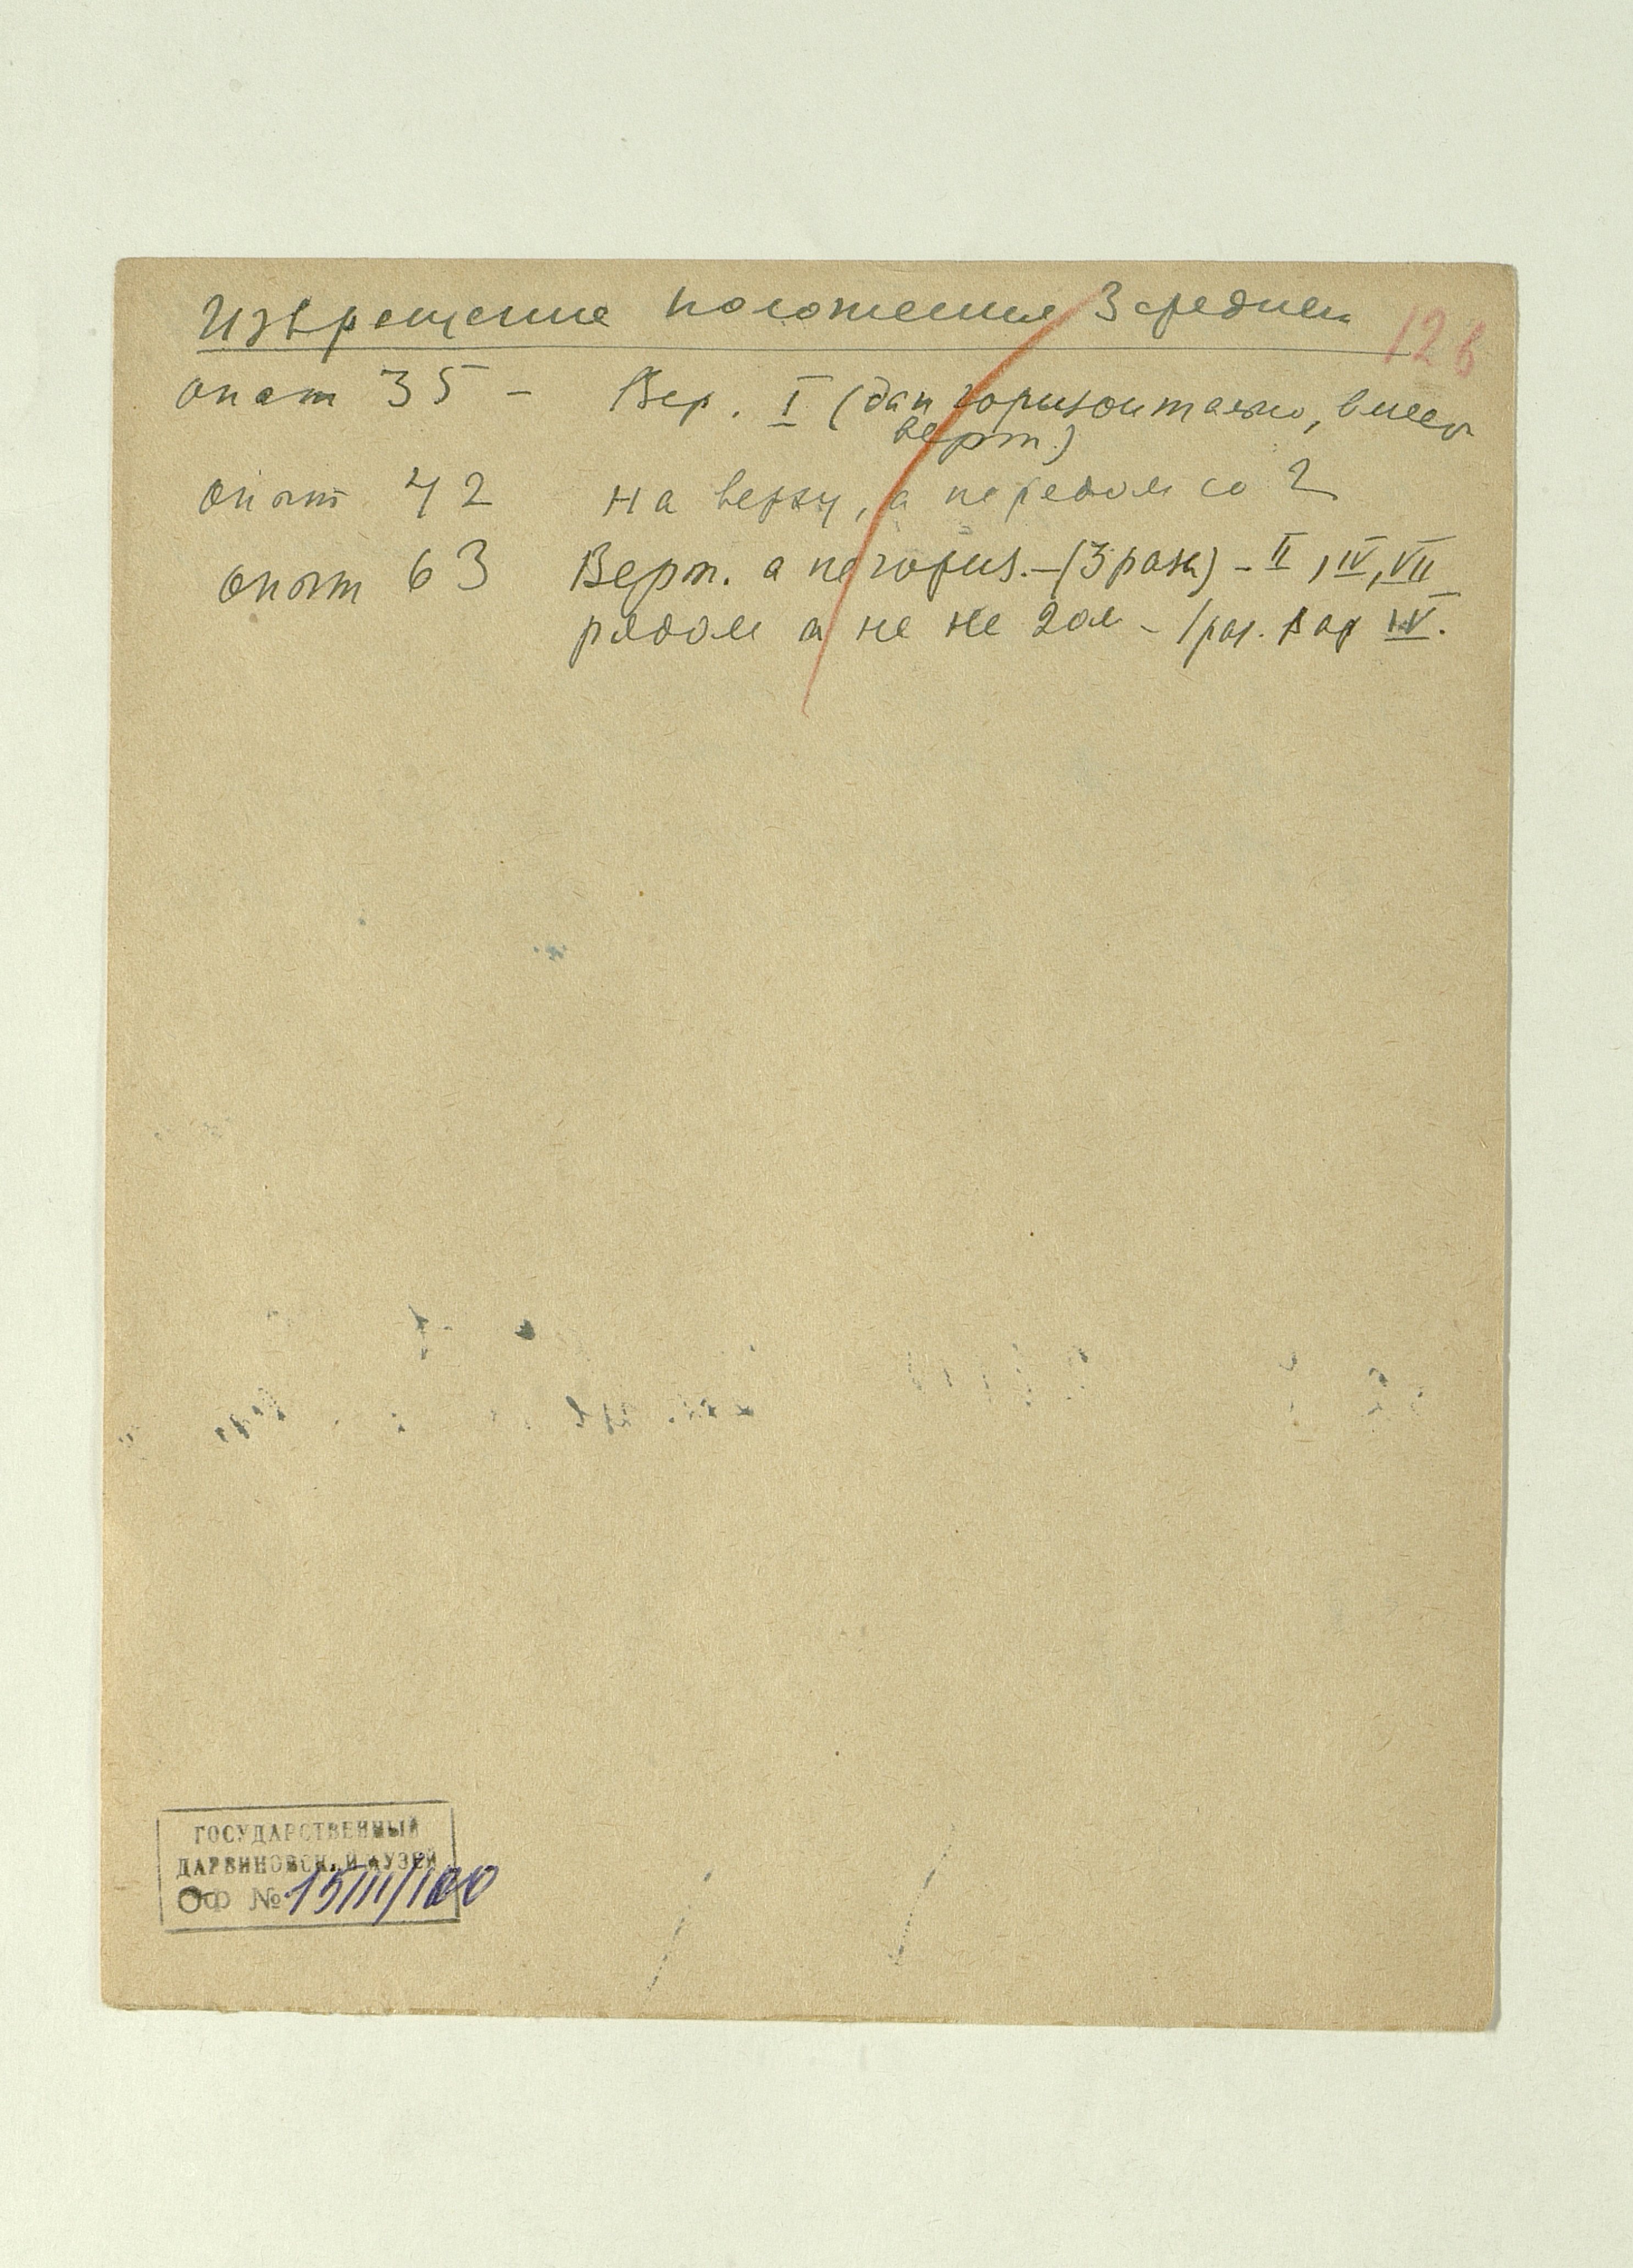 Извращение положения 3 средней
12в
опыт 35 - Вер. I (дан горизонтально, вместо
верт.)
опыт 42 на верху, а не рядом со 2
опыт 63 Верт. а не гориз. - (3 раза) - II, IV, VII
рядом а не на 2ом - 1 раз. Вар IV.
ГОСУДАРСТВЕННЫЙ
ДАРВИНОВСК. И МУЗЕЙ
ОФ № 15111/100